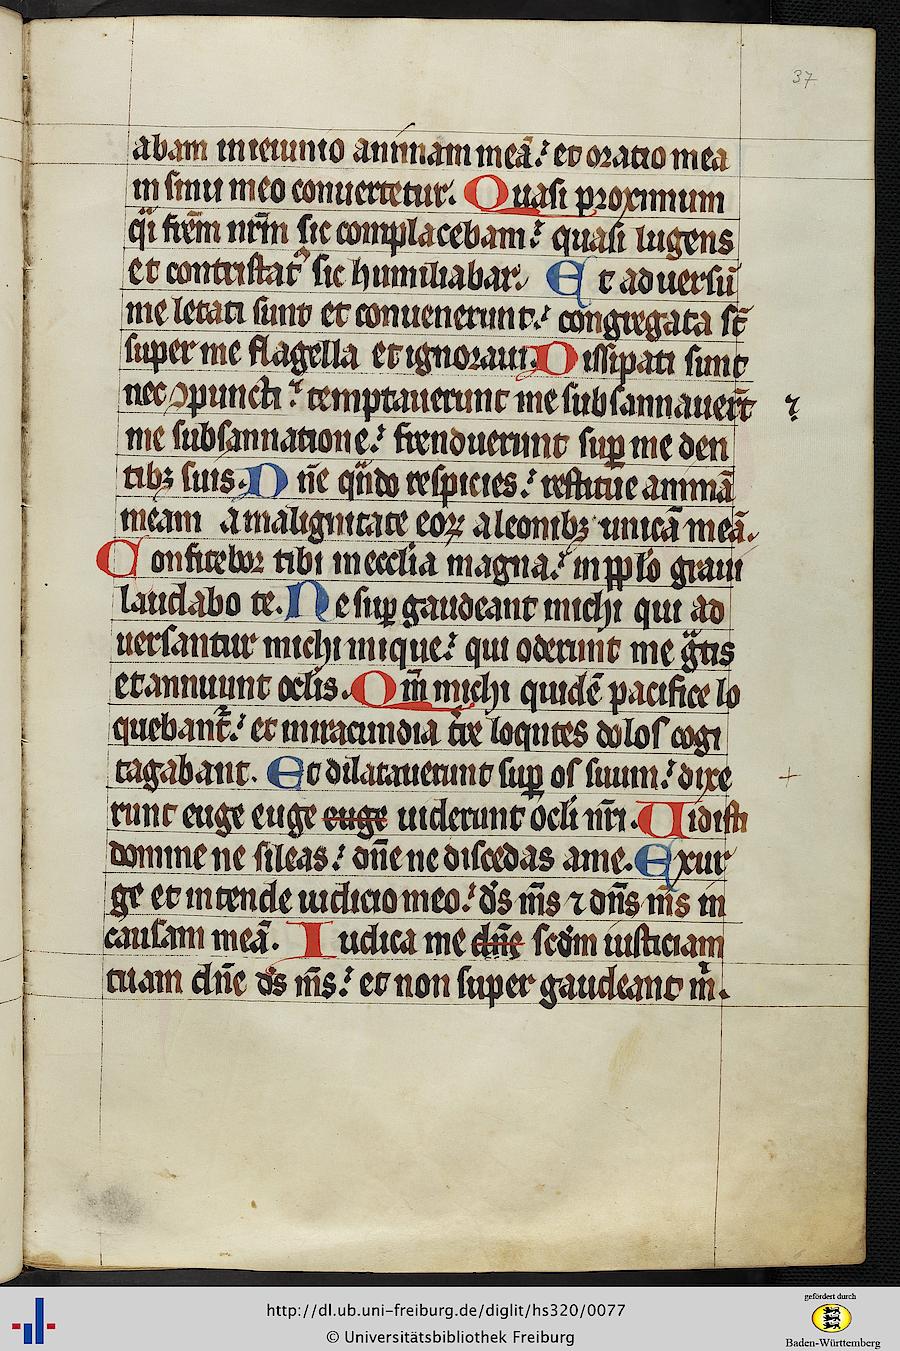 37
abam in ieiunio animam meā: et oratio mea
in sinu meo conuertetur. Quasi proximum
qͣi frēm nrm̄ sic complacebam: quasi lugens
et contristatꝰ sic humiliabar. Et aduersū
me letati sunt et conuenerunt: congregata st̄
super me flagella et ignoraui. Dissipati sunt
nec ↄpuncti: temptauerunt me subsannauerūt
me subsannatione: frenduerunt suꝑ me den
tibꝫ suis. Dn̄e qn̄do respicies: restitue animā
meam a malignitate eoꝝ a leonibꝫ unicā meā.
Confitebor tibi in ecclīa magna: in pp̄lo graui
laudabo te. Ne suꝑ gaudeant michi qui ad
uersantur michi inique: qui oderunt me gͣtis
et annuunt oclis. Qm̄ michi quidē pacifice lo
quebant᷑: et in iracundia tr̄e loqntes dolos cogi
tagabant. Et dilatauerunt suꝑ os suum: dixe
runt euge euge euge uiderunt ocli nr̄i. Uidisti
domine ne sileas: dn̄e ne discedas a me. Exur
ge et intende iudicio meo: ds̄ ms̄ ⁊ dn̄s ms̄ in
causam meā. Iudica me dn̄e scd̄m iusticiam
tuam dn̄e ds̄ ms̄: et non super gaudeant mͥ.
http://dl.ub.uni-freiburg.de/diglit/hs320/0077
© Universitätsbibliothek Freiburg
gefördert durch
Baden-Württemberg